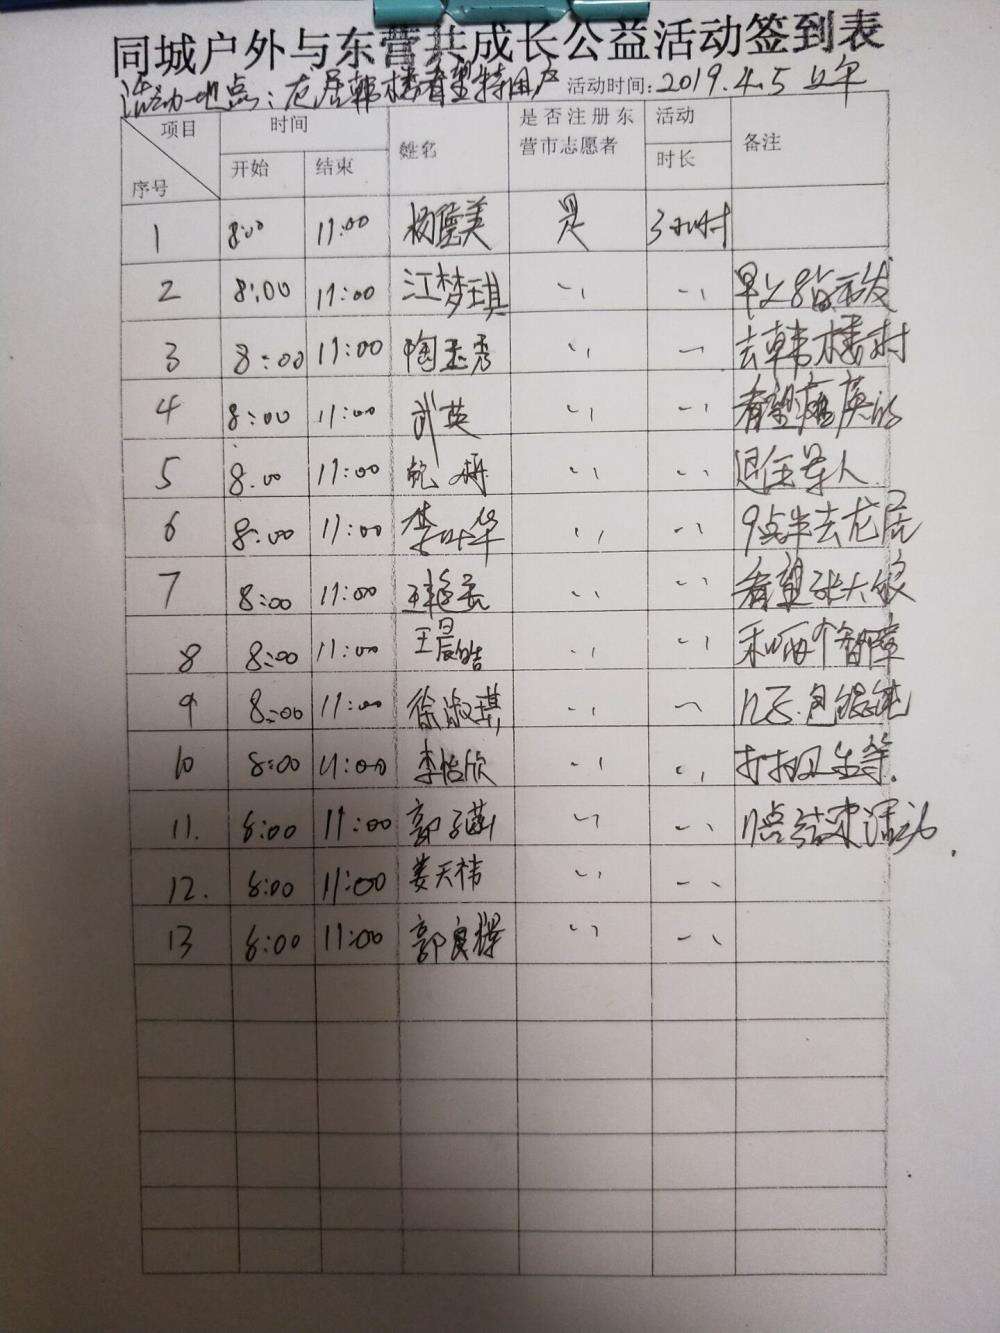 同城户外与东营共成长公益活动签到表
活动地点:龙居韩楼看望特困户 活动时间:2019.4.5 上午
项目 时间 姓名 是否注册东 活动 备注
营市志愿者
序号 开始 结束 时长
1 8:00 11:00 杨黛美 是 3小时
2 8:00 11:00 江梦琪 〃 〃 早上8点出发
3 8:00 11:00 陶玉秀 〃 〃 去韩楼村
4 8:00 11:00 武英 〃 〃 看望
5 8:00 11:00 〃 〃 退伍军人
6 8:00 11:00 李叶华 〃 〃 9点半去龙居
7 8:00 11:00 〃 〃 看望张大
8 8:00 11:00 王晨皓 〃 〃 和两个智障
9 8:00 11:00 徐淑琪 〃 〃 儿子.包馄饨
10 8:00 11:00 李怡欣 〃 〃 打扫卫生等.
11. 8:00 11:00 郭子菡 〃 〃 11点结束活动.
12. 8:00 11:00 姜天祎 〃 〃
13 8:00 11:00 郭良辉 〃 〃